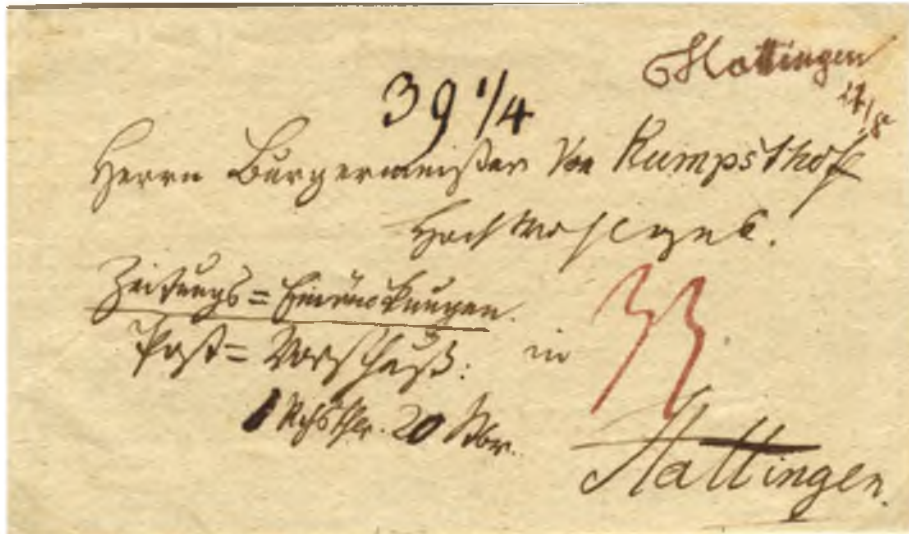 Hattingen
39 1/4
Herrn Bürgermeister Von Kumpsthof
Hochwohlgeb.
Zeitungs=Einrückungen.
Post=Vorschuß: in
1 Rchsthlr. 20 Stbr.
Hattingen.